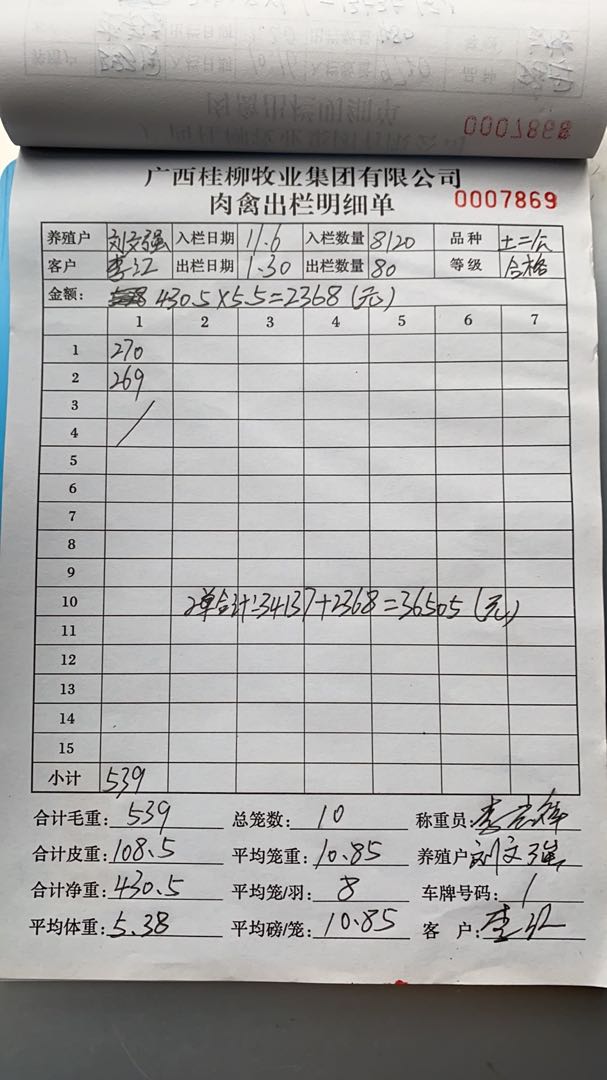 0007868
广西桂柳牧业集团有限公司
肉禽出栏明细单 0007869
养殖户 刘文强 入栏日期 11.6 入栏数量 8120 品种 土二公
客户 李江 出栏日期 1.30 出栏数量 80 等级 合格
金额: 430.5×5.5=2368(元)
1 2 3 4 5 6 7
1 270
2 269
3
4
5
6
7
8
9
10 2单合计:34137+2368=36505(元)
11
12
13
14
15
小计 539
合计毛重: 539 总笼数: 10 称重员:
合计皮重: 108.5 平均笼重: 10.85 养殖户 刘文强
合计净重: 430.5 平均笼/羽: 8 车牌号码: 1
平均体重: 5.38 平均磅/笼: 10.85 客 户: 李江